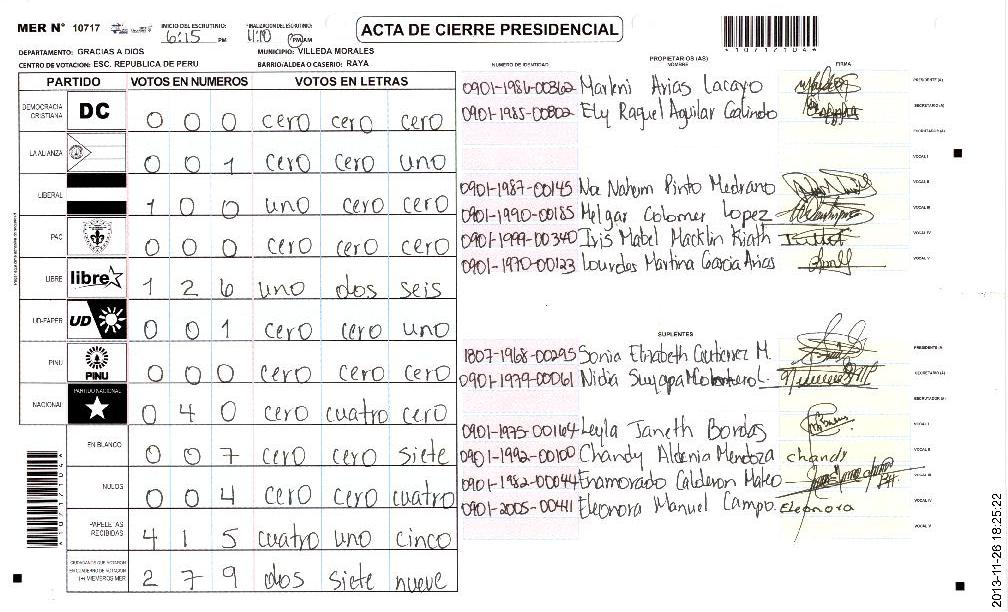 MER N° 10717
INICIO DEL ESCRUTINIO: 6:15 PM
FINALIZACION DEL ESCRUTINIO: 11:10 PM AM
ACTA DE CIERRE PRESIDENCIAL
A10717104A
DEPARTAMENTO: GRACIAS A DIOS
MUNICIPIO: VILLEDA MORALES
CENTRO DE VOTACION: ESC. REPUBLICA DE PERU
BARRIO/ALDEA O CASERIO: RAYA
PARTIDO VOTOS EN NUMEROS VOTOS EN LETRAS
DEMOCRACIA CRISTIANA DC 0 0 0 cero cero cero
LA ALIANZA 0 0 1 cero cero uno
LIBERAL 1 0 0 uno cero cero
PAC 0 0 0 cero cero cero
LIBRE libre 1 2 6 uno dos seis
UD-FAPER UD 0 0 1 cero cero uno
PINU PINU 0 0 0 cero cero cero
NACIONAL PARTIDO NACIONAL 0 4 0 cero cuatro cero
EN BLANCO 0 0 7 cero cero siete
NULOS 0 0 4 cero cero cuatro
PAPELETAS RECIBIDAS 4 1 5 cuatro uno cinco
CIUDADANOS QUE VOTARON EN CUADERNO DE VOTACION (+) MIEMBROS MER 2 7 9 dos siete nueve
PROPIETARIOS (AS)
NUMERO DE IDENTIDAD NOMBRE FIRMA
0901-1986-00362 Marleni Arias Lacayo PRESIDENTE(A)
0901-1985-00802 Ely Raquel Aguilar Galindo SECRETARIO (A)
ESCRUTADOR (A)
VOCAL I
0901-1987-00145 Noe Nahum Pinto Medrano VOCAL II
0901-1990-00185 Melgar Colomer Lopez VOCAL III
0901-1999-00340 Iris Mabel Macklin Kiath VOCAL IV
0901-1970-00123 Lourdes Martina Garcia Arias VOCAL V
SUPLENTES
1807-1968-00295 Sonia Elizabeth Gutierrez M. PRESIDENTE (A)
0901-1979-00061 Nidia Suyapa L. SECRETARIO (A)
ESCRUTADOR (A)
0901-1975-00164 Leyla Janeth Bordas VOCAL I
0901-1992-00100 Chandy Aldenia Mendoza chandy VOCAL II
0901-1982-00044 Enamorado Calderon Mateo VOCAL III
0901-2005-00441 Eleonora Manuel Campo. Eleonora VOCAL IV
VOCAL V
A10717104A
2013-11-26 18:25:22